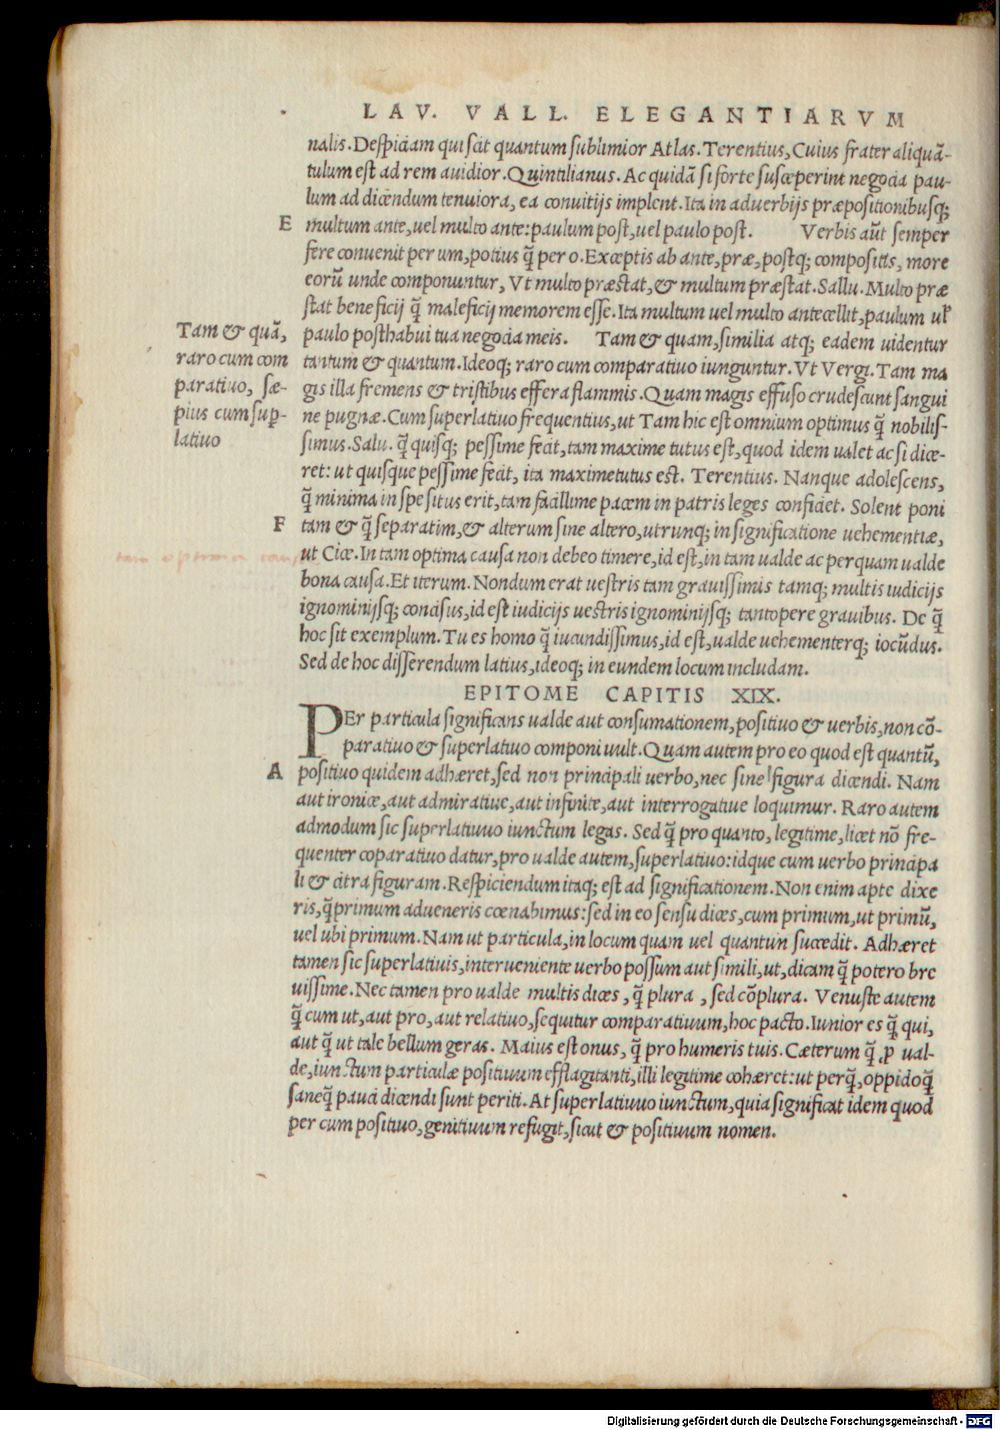 LAV. VALL. ELEGANTIARVM
nalis. Despiciam qui scit quantum sublimior Atlas. Terentius, Cuius frater aliquā-
tulum est ad rem auidior. Quintilianus. Ac quidā si forte susceperint negocia pau-
lum ad dicendum tenuiora, ea conuitijs implent. Ita in aduerbijs præpositionibusq;
E
multum ante, uel multo ante: paulum post, uel paulo post. Verbis aūt semper
fere conuenit per um, potius q̄ per o. Exceptis ab ante, præ, postq; compositis, more
eorū unde componuntur, Vt multo præstat, & multum præstat. Sallu. Multo præ
stat beneficij q̄ maleficij memorem esse. Ita multum uel multo antecellit, paulum ul̓
Tam & quā,
raro cum com
paratiuo, sæ-
pius cum sup̱-
latiuo
paulo posthabui tua negocia meis. Tam & quam, similia atq; eadem uidentur
tantum & quantum. Ideoq; raro cum comparatiuo iunguntur. Vt Vergi. Tam ma
gis illa fremens & tristibus effera flammis. Quam magis effuso crudescunt sangui
ne pugnæ. Cum superlatiuo frequentius, ut Tam hic est omnium optimus q̄ nobilis-
simus. Salu. q̄ quisq; pessime fecit, tam maxime tutus est, quod idem ualet ac si dice-
ret: ut quisque pessime fecit, ita maxime tutus est. Terentius. Nanque adolescens,
q̄ minima in spe situs erit, tam facillime pacem in patris leges conficiet. Solent poni
F
tam & q̄ separatim, & alterum sine altero, utrunq; in significatione uehementiæ,
tam optima
ut Cice. In tam optima causa non debeo timere, id est, in tam ualde ac perquam ualde
bona causa. Et iterum. Nondum erat uestris tam grauissimis tamq; multis iudicijs
ignominijsq; concisus, id est iudicijs uestris ignominijsq; tantopere grauibus. De q̄
hoc sit exemplum. Tu es homo q̄ iucundissimus, id est, ualde uehementerq; iocūdus.
Sed de hoc disserendum latius, ideoq; in eundem locum includam.
EPITOME CAPITIS XIX.
PEr particula significans ualde aut consumationem, positiuo & uerbis, non cō-
paratiuo & superlatiuo componi uult. Quam autem pro eo quod est quantū,
A
positiuo quidem adhæret, sed non principali uerbo, nec sine figura dicendi. Nam
aut ironice, aut admiratiue, aut infinite, aut interrogatiue loquimur. Raro autem
admodum sic superlatiuuo iunctum legas. Sed q̄ pro quanto, legitime, licet nō fre-
quenter coparatiuo datur, pro ualde autem, superlatiuo: idque cum uerbo principa
li & citra figuram. Respiciendum itaq; est ad significationem. Non enim apte dixe
ris, q̄ primum adueneris cœnabimus: sed in eo sensu dices, cum primum, ut primū,
uel ubi primum. Nam ut particula, in locum quam uel quantun succedit. Adhæret
tamen sic superlatiuis, interueniente uerbo possum aut simili, ut, dicam q̄ potero bre
uissime. Nec tamen pro ualde multis dices, q̄ plura, sed cōplura. Venuste autem
q̄ cum ut, aut pro, aut relatiuo, sequitur comparatiuum, hoc pacto. Iunior es q̄ qui,
aut q̄ ut tale bellum geras. Maius est onus, q̄ pro humeris tuis. Cæterum q̄ ꝓ ual-
de, iunctum particulæ positiuum efflagitanti, illi legitime cohæret: ut perq̄, oppidoq̄
saneq̄ pauci dicendi sunt periti. At superlatiuuo iunctum, quia significat idem quod
per cum positiuo, genitiuum refugit, sicut & positiuum nomen.
Digitalisierung gefördert durch die Deutsche Forschungsgemeinschaft - DFG